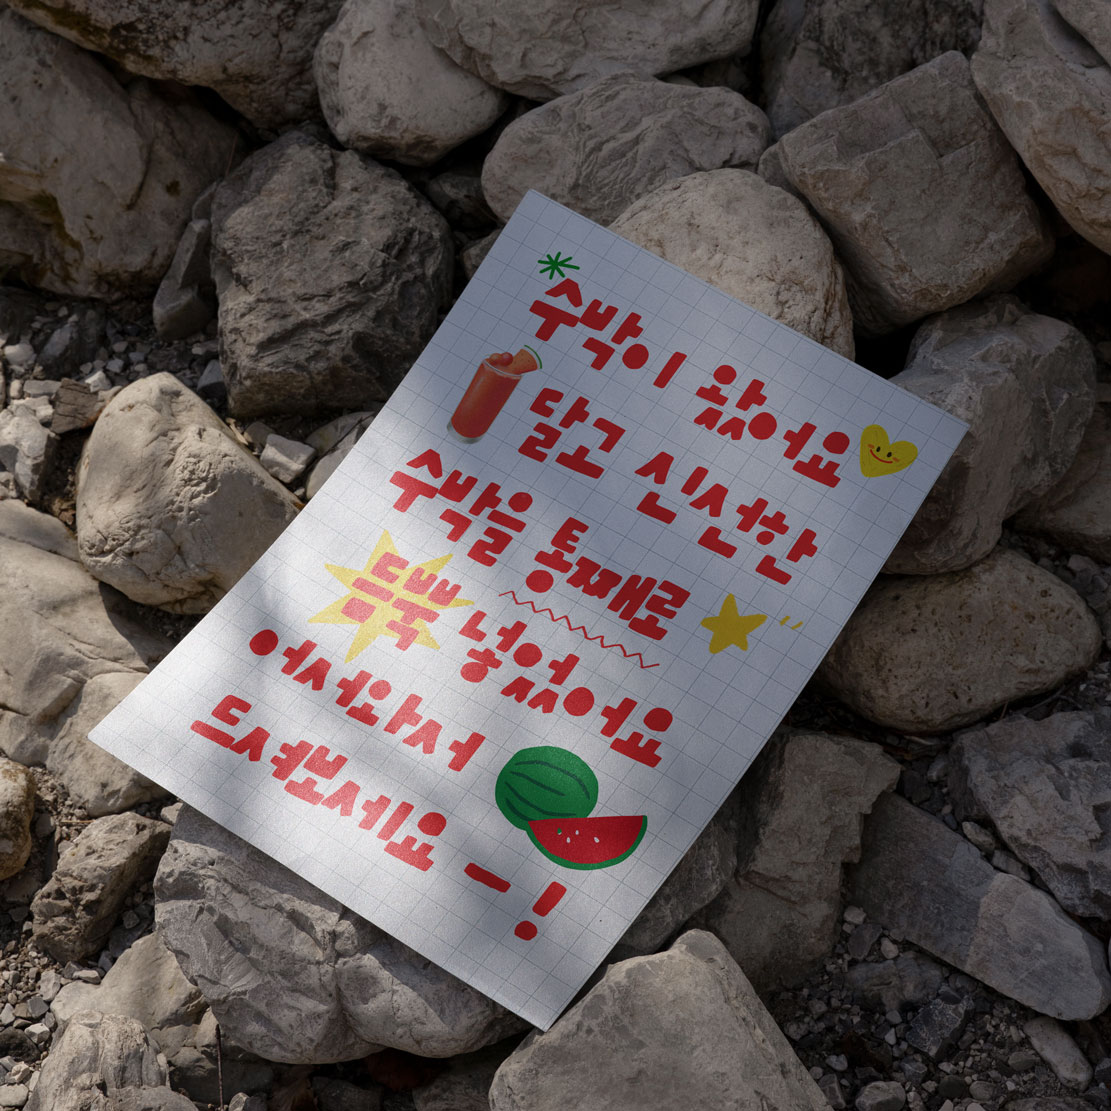 수박이 왔어요
달고 신선한
수박을 통째로
듬뿍 넣었어요
어서와서
드셔보세요 – !